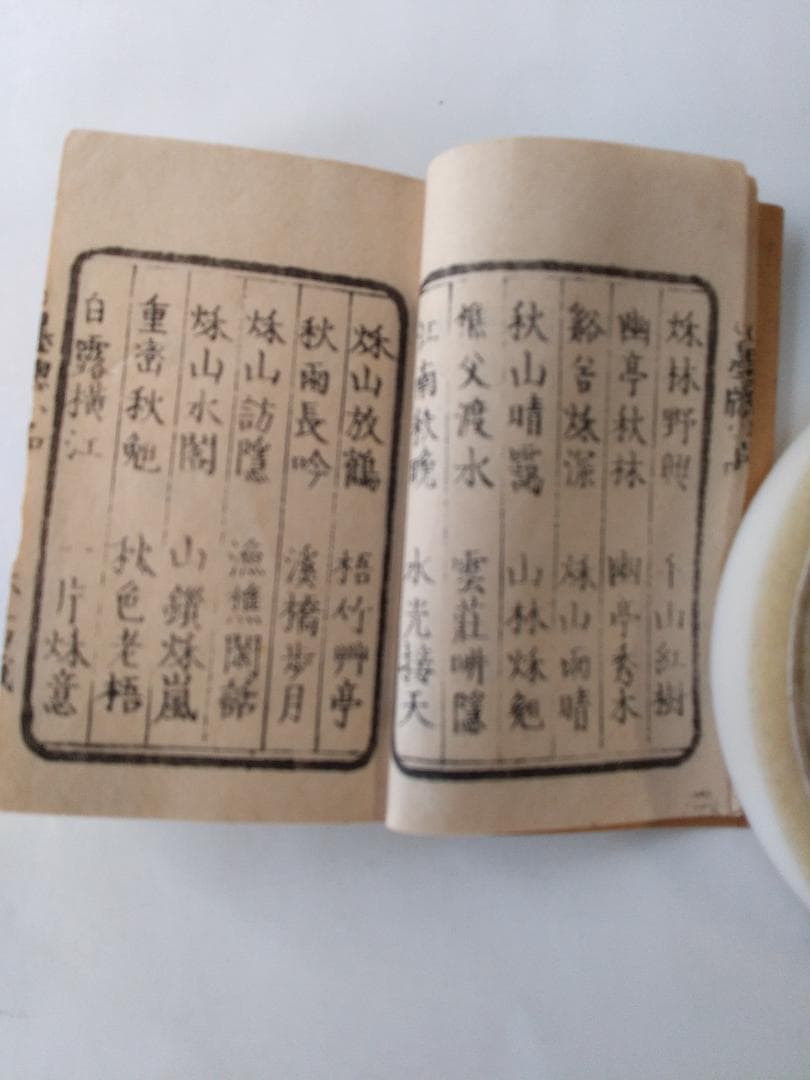 烁林野眺 千山紅樹
幽亭秋林 幽亭秀木
谿谷烁深 烁山雨晴
秋山晴靄 山林烁勉
樵父渡水 雲莊畊隱
江南秋晚 水光接天
烁山放鶴 梧竹艸亭
秋雨長吟 溪橋步月
烁山訪隱 漁樵閑話
烁山水閣 山鎖烁嵐
重密秋勉 秋色老梧
白露橫江 一片烁意